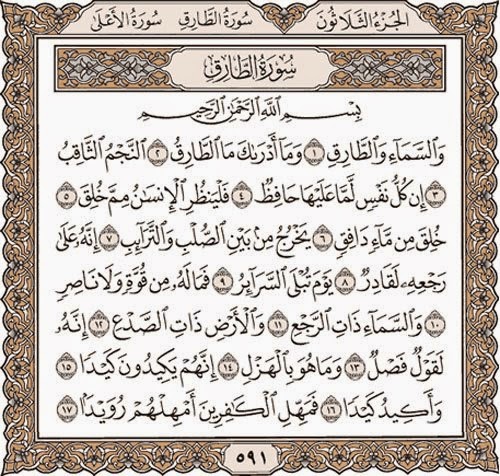 سُورَةُ الأَعْلَى سُورَةُ الطَّارِقِ الجُزْءُ الثَّلَاثُونَ
سُورَةُ الطَّارِقِ
بِسْمِ ٱللَّهِ ٱلرَّحْمَٰنِ ٱلرَّحِيمِ
وَٱلسَّمَآءِ وَٱلطَّارِقِ ١ وَمَآ أَدْرَىٰكَ مَا ٱلطَّارِقُ ٢ ٱلنَّجْمُ ٱلثَّاقِبُ
٣ إِن كُلُّ نَفْسٍ لَّمَّا عَلَيْهَا حَافِظٌ ٤ فَلْيَنظُرِ ٱلْإِنسَٰنُ مِمَّ خُلِقَ ٥
خُلِقَ مِن مَّآءٍ دَافِقٍ ٦ يَخْرُجُ مِنۢ بَيْنِ ٱلصُّلْبِ وَٱلتَّرَآئِبِ ٧ إِنَّهُۥ عَلَىٰ
رَجْعِهِۦ لَقَادِرٌ ٨ يَوْمَ تُبْلَى ٱلسَّرَآئِرُ ٩ فَمَا لَهُۥ مِن قُوَّةٍ وَلَا نَاصِرٍ
١٠ وَٱلسَّمَآءِ ذَاتِ ٱلرَّجْعِ ١١ وَٱلْأَرْضِ ذَاتِ ٱلصَّدْعِ ١٢ إِنَّهُۥ
لَقَوْلٌ فَصْلٌ ١٣ وَمَا هُوَ بِٱلْهَزْلِ ١٤ إِنَّهُمْ يَكِيدُونَ كَيْدًا ١٥
وَأَكِيدُ كَيْدًا ١٦ فَمَهِّلِ ٱلْكَٰفِرِينَ أَمْهِلْهُمْ رُوَيْدًۢا ١٧
٥٩١